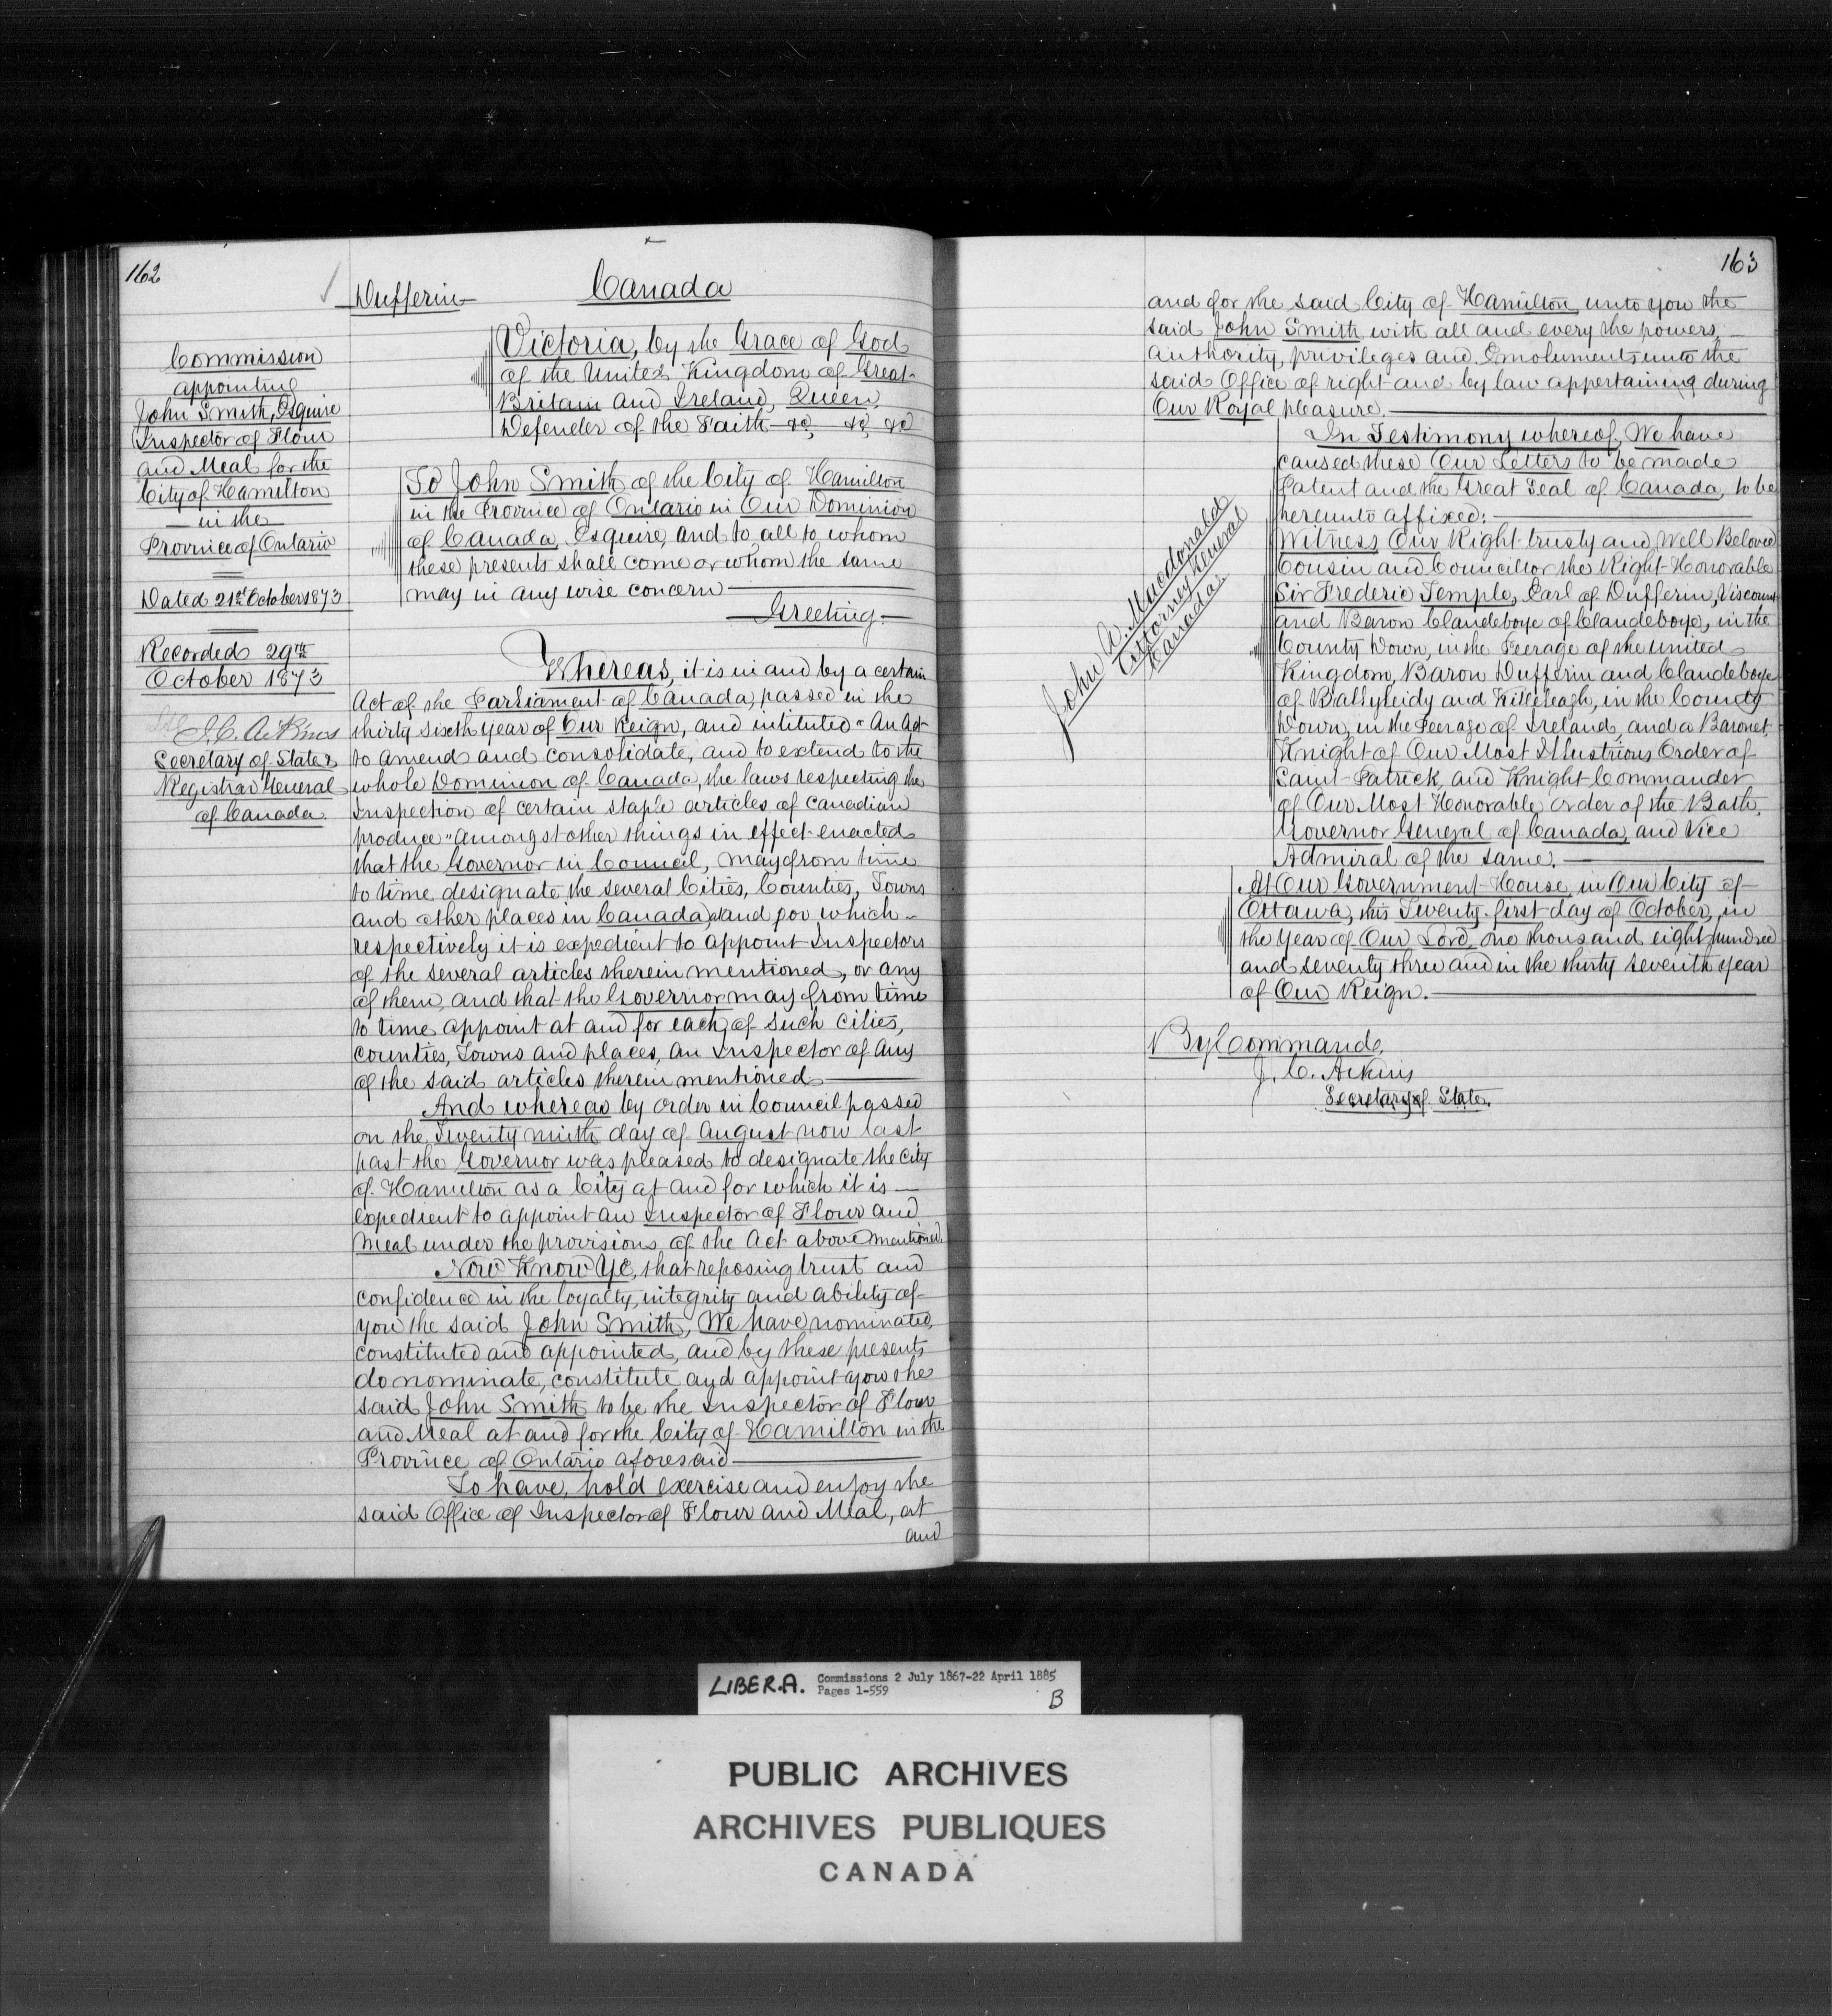 162
Dufferin
Canada
Commission
appointing
John Smith, Esquire
Inspector of Flour
and Meal for the
City of Hamilton
in the
Province of Ontario
Dated 21st October 1873
Recorded 29th
October 1873
J. C. Aikins
Secretary of State &
Registrar General
of Canada.
Victoria, by the Grace of God
of the United Kingdom of Great
Britain and Ireland, Queen,
Defender of the Faith &c, &c, &c
To John Smith of the City of Hamilton
in the Province of Ontario in Our Dominion
of Canada, Esquire, and to all to whom
these presents shall come or whom the same
may in any wise concern
Greeting.
Whereas, it is in and by a certain
Act of the Parliament of Canada, passed in the
thirty sixth year of Our Reign, and intituled "An Act
to amend and consolidate, and to extend to the
whole Dominion of Canada, the laws respecting the
Inspection of certain staple articles of Canadian
produce" amongst other things in effect enacted
that the Governor in Council, may from time
to time designate the several Cities, Counties, Towns
and other places in Canada, at and for which
respectively it is expedient to appoint Inspectors
of the several articles therein mentioned, or any
of them, and that the Governor may from time
to time appoint at and for each of such cities,
counties, Towns and places, an Inspector of any
of the said articles therein mentioned
And whereas by Order in Council passed
on the Twenty ninth day of August now last
past the Governor was pleased to designate the City
of Hamilton as a City at and for which it is
expedient to appoint an Inspector of Flour and
Meal under the provisions of the Act above mentioned.
Now Know Ye, that reposing trust and
confidence in the loyalty, integrity and ability of
you the said John Smith, We have nominated,
constituted and appointed, and by these presents
do nominate, constitute and appoint you the
said John Smith to be the Inspector of Flour
and Meal at and for the City of Hamilton in the
Province of Ontario aforesaid
To have, hold exercise and enjoy the
said Office of Inspector of Flour and Meal, at
and
163
and for the said City of Hamilton, unto you the
said John Smith, with all and every the powers,
authority, privileges and Emoluments unto the
said Office of right and by law appertaining during
Our Royal pleasure.
In Testimony whereof, We have
caused these Our Letters to be made
Patent and the Great Seal of Canada, to be
hereunto affixed:
Witness Our Right trusty and Well Beloved
Cousin and Councillor the Right Honorable
Sir Frederic Temple, Earl of Dufferin, Viscount
and Baron Clandeboye of Clandeboye, in the
County Down, in the Peerage of the United
Kingdom, Baron Dufferin and Clandeboye
of Ballyleidy and Killeleagh, in the County
Down, in the Peerage of Ireland, and a Baronet,
Knight of Our Most Illustrious Order of
Saint Patrick, and Knight Commander
of Our Most Honorable Order of the Bath,
Governor General of Canada, and Vice
Admiral of the same.
At Our Government House, in Our City of
Ottawa, this Twenty first day of October, in
the Year of Our Lord, one thousand eight hundred
and seventy three and in the thirty seventh year
of Our Reign.
John A. Macdonald
Attorney General
Canada
By Command,
J. C. Aikins
Secretary of State.
LIBER.A. Commissions 2 July 1867-22 April 1885
Pages 1-559
B
PUBLIC ARCHIVES
ARCHIVES PUBLIQUES
CANADA